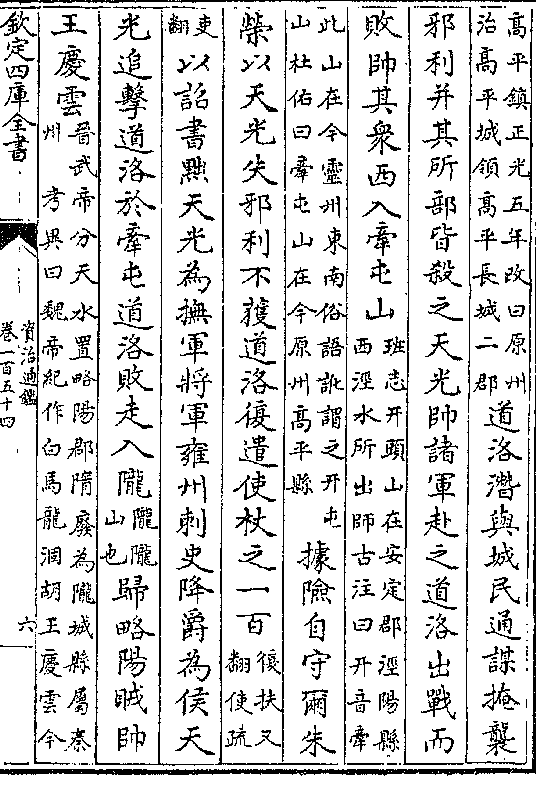 高平鎮正光五年改曰原州
治高平城領高平長城二郡
道洛潛與城民通謀掩襲
邪利并其所部皆殺之天光帥諸軍赴之道洛出戰而
敗帥其衆西入牽屯山
班志开頭山在安定郡涇陽縣
西涇水所出師古注曰开音牽
此山在今靈州東南俗語訛謂之开屯
山杜佑曰牽屯山在今原州高平縣
據險自守爾朱
榮以天光失邪利不獲道洛復遣使杖之一百
復扶又
翻使疏
吏
翻
以詔書黜天光為撫軍將軍雍州刺史降爵為侯天
光追擊道洛於牽屯道洛敗走入隴
隴隴
山也
歸略陽賊帥
王慶雲
晉武帝分天水置略陽郡隋廢為隴城縣屬秦
州 考異曰魏帝紀作白馬龍涸胡王慶雲今
欽定四庫全書
資治通鑑
卷一百五十四
六